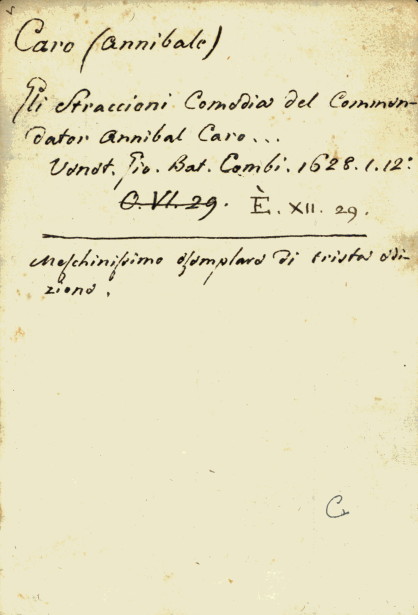 Caro (Annibale)
Gli Straccioni Comedia del Commen-
dator Annibal Caro...
Venet. Gio. Bat. Combi. 1628. 1. 12:
O. VI. 29. È. XII. 29.
Meschinissimo esemplare di trista edi-
zione.
C